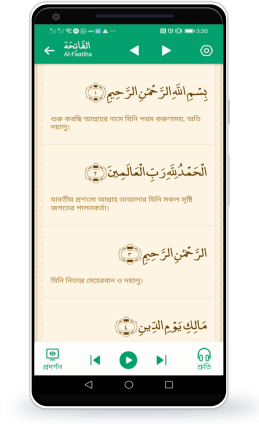 3:30
الفَاتِحَة
Al-Faatiha
بِسْمِ اللَّهِ الرَّحْمَٰنِ الرَّحِيمِ ١
শুরু করছি আল্লাহর নামে যিনি পরম করুণাময়, অতি
দয়ালু।
الْحَمْدُ لِلَّهِ رَبِّ الْعَالَمِينَ ٢
যাবতীয় প্রশংসা আল্লাহ তাআলার যিনি সকল সৃষ্টি
জগতের পালনকর্তা।
الرَّحْمَٰنِ الرَّحِيمِ ٣
যিনি নিতান্ত মেহেরবান ও দয়ালু।
مَالِكِ يَوْمِ الدِّينِ ٤
প্রদর্শন
শ্রুতি